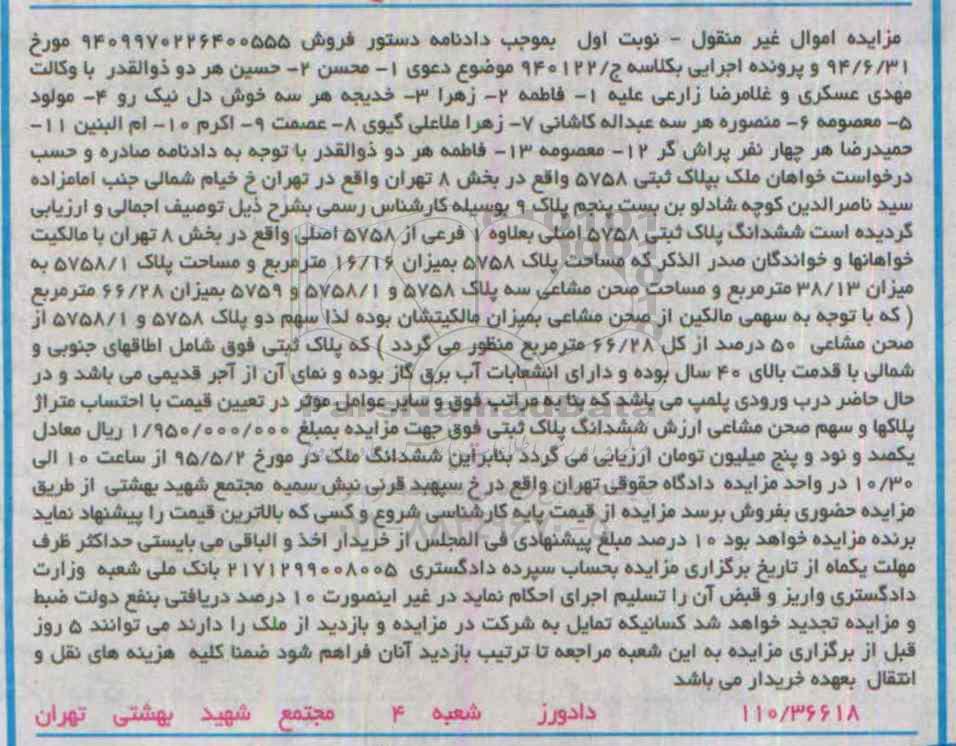 مزایده اموال غیر منقول - نوبت اول بموجب دادنامه دستور فروش ۹۴۰۹۹۷۰۲۲۶۴۰۰۵۵۵ مورخ
۹۴/۶/۳۱ و پرونده اجرایی بکلاسه ج/۹۴۰۱۲۲ موضوع دعوی ۱- محسن ۲- حسین هر دو ذوالقدر با وکالت
مهدی عسکری و غلامرضا زارعی علیه ۱- فاطمه ۲- زهرا ۳- خدیجه هر سه خوش دل نیک رو ۴- مولود
۵- معصومه ۶- منصوره هر سه عبداله کاشانی ۷- زهرا ملاعلی گیوی ۸- عصمت ۹- اکرم ۱۰- ام البنین ۱۱-
حمیدرضا هر چهار نفر پراش گر ۱۲- معصومه ۱۳- فاطمه هر دو ذوالقدر با توجه به دادنامه صادره و حسب
درخواست خواهان ملک بپلاک ثبتی ۵۷۵۸ واقع در بخش ۸ تهران واقع در تهران خ خیام شمالی جنب امامزاده
سید ناصرالدین کوچه شادلو بن بست پنجم پلاک ۹ بوسیله کارشناس رسمی بشرح ذیل توصیف اجمالی و ارزیابی
گردیده است ششدانگ پلاک ثبتی ۵۷۵۸ اصلی بعلاوه ۱ فرعی از ۵۷۵۸ اصلی واقع در بخش ۸ تهران با مالکیت
خواهانها و خواندگان صدر الذکر که مساحت پلاک ۵۷۵۸ بمیزان ۱۶/۱۶ مترمربع و مساحت پلاک ۵۷۵۸/۱ به
میزان ۳۸/۱۳ مترمربع و مساحت صحن مشاعی سه پلاک ۵۷۵۸ و ۵۷۵۸/۱ و ۵۷۵۹ بمیزان ۶۶/۲۸ مترمربع
( که با توجه به سهمی مالکین از صحن مشاعی بمیزان مالکیتشان بوده لذا سهم دو پلاک ۵۷۵۸ و ۵۷۵۸/۱ از
صحن مشاعی ۵۰ درصد از کل ۶۶/۲۸ مترمربع منظور می گردد ) که پلاک ثبتی فوق شامل اطاقهای جنوبی و
شمالی با قدمت بالای ۴۰ سال بوده و دارای انشعابات آب برق گاز بوده و نمای آن از آجر قدیمی می باشد و در
حال حاضر درب ورودی پلمپ می باشد که بنا به مراتب فوق و سایر عوامل موثر در تعیین قیمت با احتساب متراژ
پلاکها و سهم صحن مشاعی ارزش ششدانگ پلاک ثبتی فوق جهت مزایده بمبلغ ۱/۹۵۰/۰۰۰/۰۰۰ ریال معادل
یکصد و نود و پنج میلیون تومان ارزیابی می گردد بنابراین ششدانگ ملک در مورخ ۹۵/۵/۲ از ساعت ۱۰ الی
۱۰/۳۰ در واحد مزایده دادگاه حقوقی تهران واقع در خ سپهبد قرنی نبش سمیه مجتمع شهید بهشتی از طریق
مزایده حضوری بفروش برسد مزایده از قیمت پایه کارشناسی شروع و کسی که بالاترین قیمت را پیشنهاد نماید
برنده مزایده خواهد بود ۱۰ درصد مبلغ پیشنهادی فی المجلس از خریدار اخذ و الباقی می بایستی حداکثر ظرف
مهلت یکماه از تاریخ برگزاری مزایده بحساب سپرده دادگستری ۲۱۷۱۲۹۹۰۰۸۰۰۵ بانک ملی شعبه وزارت
دادگستری واریز و قبض آن را تسلیم اجرای احکام نماید در غیر اینصورت ۱۰ درصد دریافتی بنفع دولت ضبط
و مزایده تجدید خواهد شد کسانیکه تمایل به شرکت در مزایده و بازدید از ملک را دارند می توانند ۵ روز
قبل از برگزاری مزایده به این شعبه مراجعه تا ترتیب بازدید آنان فراهم شود ضمنا کلیه هزینه های نقل و
انتقال بعهده خریدار می باشد
۱۱۰/۳۶۶۱۸ دادورز شعبه ۴ مجتمع شهید بهشتی تهران
ParsNamadData